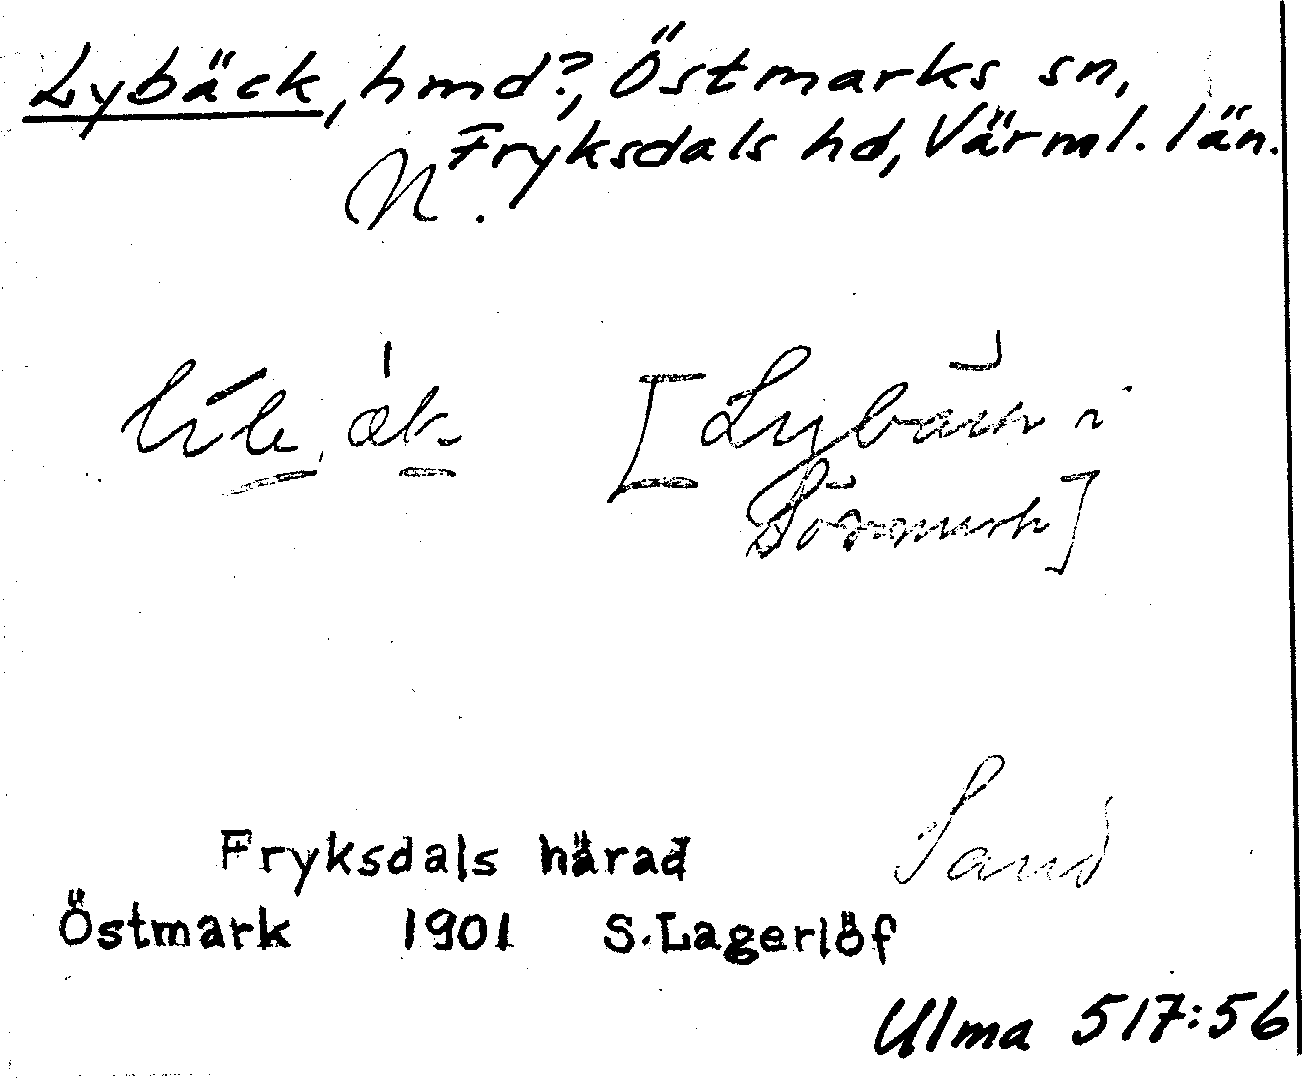 Lybäck, hmd?, Östmarks sn,
Fryksdals hd, Värml. län.
N.
[Lybäck i
]
Sand
Fryksdals härad
Östmark 1901 S.Lagerlöf
Ulma 517:56